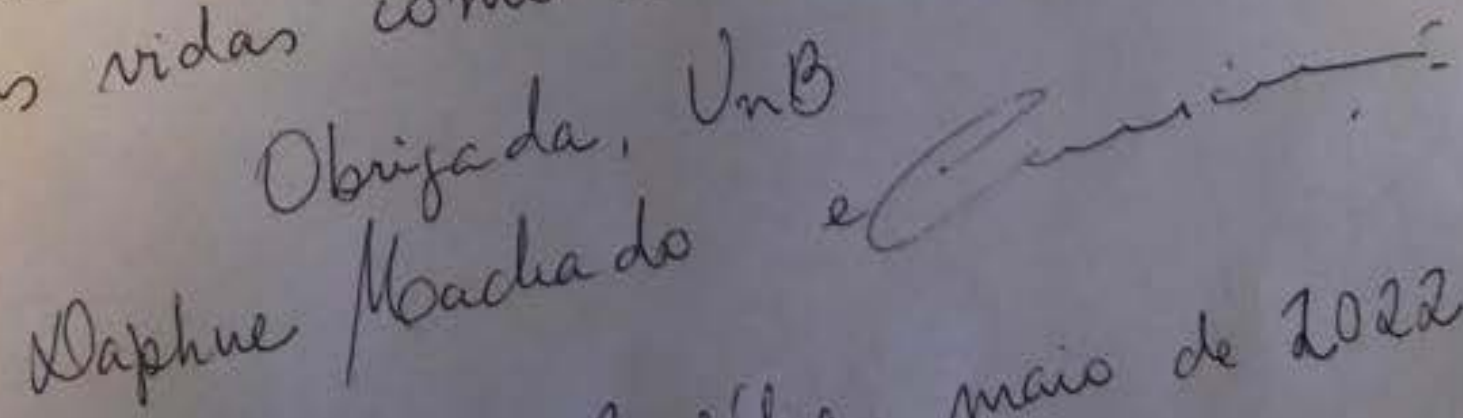 vidas
Obrigada, UnB
Daphne Machado e
maio de 2022